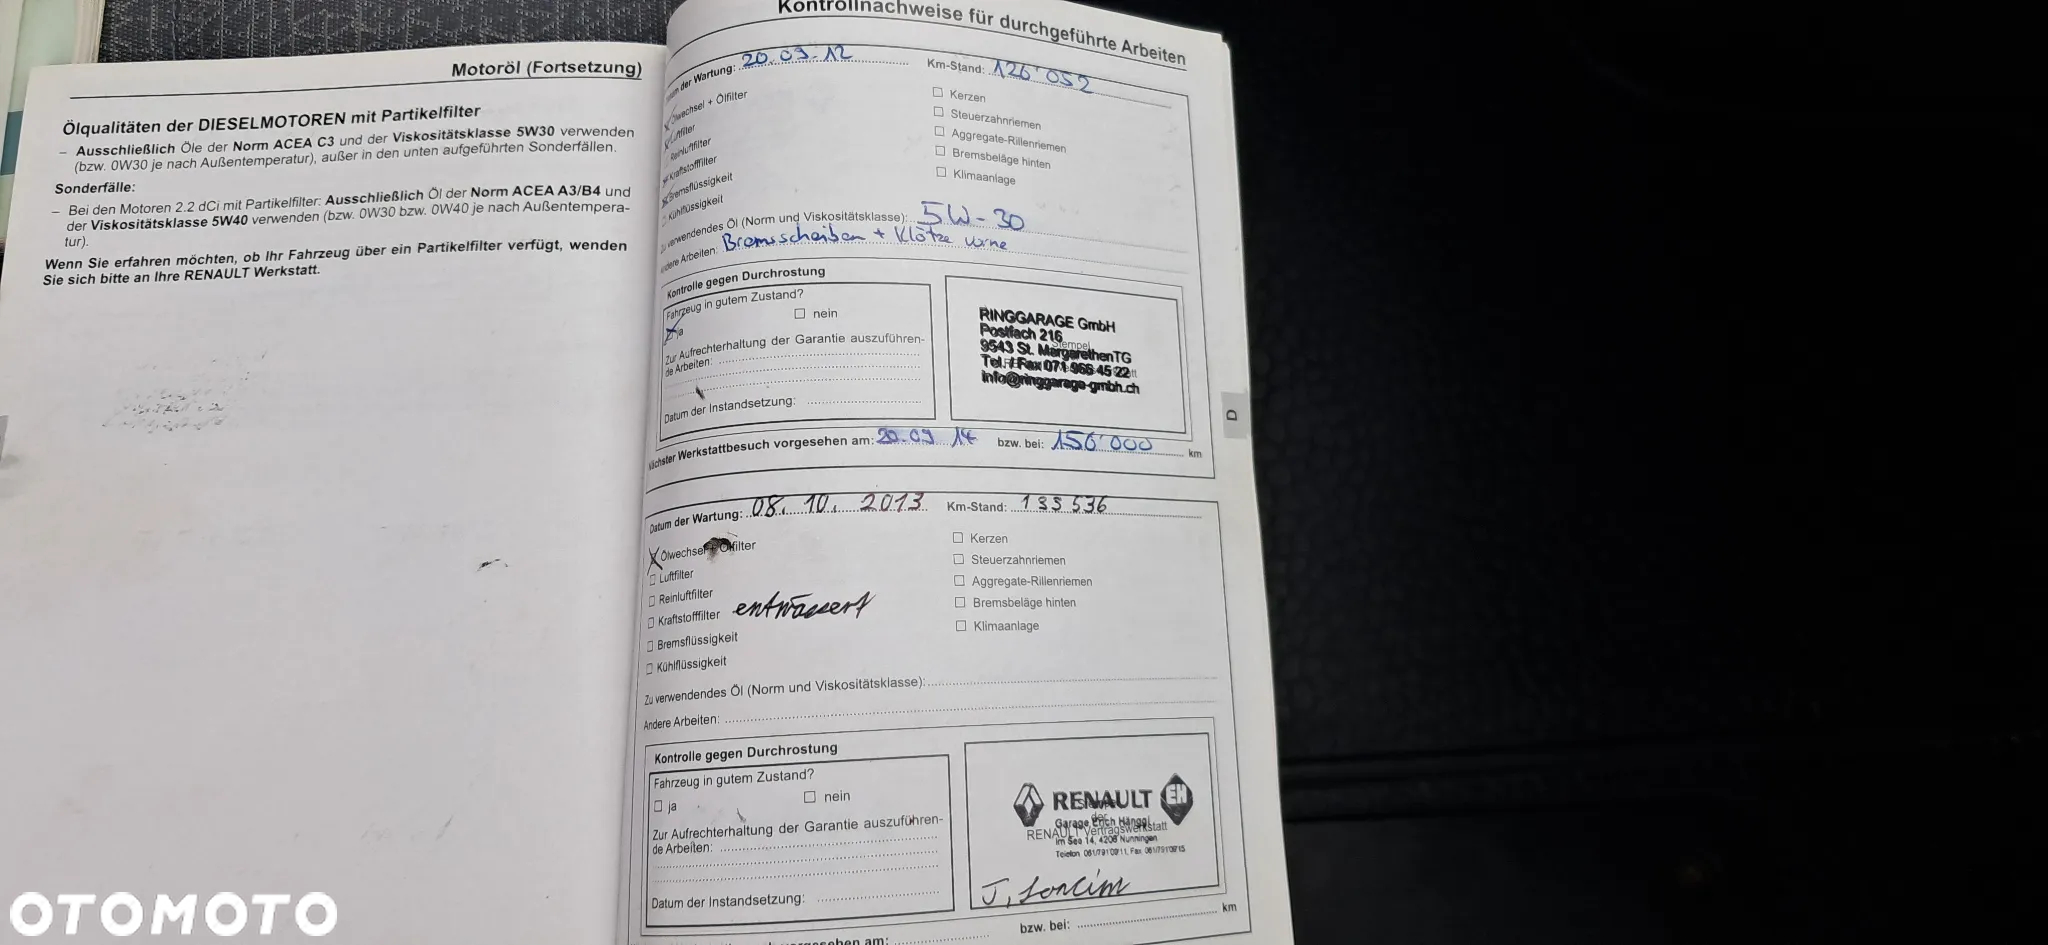 Motoröl (Fortsetzung)
Ölqualitäten der DIESELMOTOREN mit Partikelfilter
– Ausschließlich Öle der Norm ACEA C3 und der Viskositätsklasse 5W30 verwenden
(bzw. 0W30 je nach Außentemperatur), außer in den unten aufgeführten Sonderfällen.
Sonderfälle:
– Bei den Motoren 2.2 dCi mit Partikelfilter: Ausschließlich Öl der Norm ACEA A3/B4 und
der Viskositätsklasse 5W40 verwenden (bzw. 0W30 bzw. 0W40 je nach Außentempera-
tur).
Wenn Sie erfahren möchten, ob Ihr Fahrzeug über ein Partikelfilter verfügt, wenden
Sie sich bitte an Ihre RENAULT Werkstatt.
Kontrollnachweise für durchgeführte Arbeiten
Datum der Wartung: 20.09.12 Km-Stand: 126'052
Ölwechsel + Ölfilter
Luftfilter
Reinluftfilter
Kraftstofffilter
Bremsflüssigkeit
Kühlflüssigkeit
Kerzen
Steuerzahnriemen
Aggregate-Rillenriemen
Bremsbeläge hinten
Klimaanlage
Zu verwendendes Öl (Norm und Viskositätsklasse): 5W-30
Andere Arbeiten: Bremsscheiben + Klötze vorne
Kontrolle gegen Durchrostung
Fahrzeug in gutem Zustand?
ja nein
Zur Aufrechterhaltung der Garantie auszuführen-
de Arbeiten:
Datum der Instandsetzung:
RINGGARAGE GmbH
Postfach 216
Stempel
9543 St. Margarethen TG
Tel. / Fax 071 966 45 22
info@ringgarage-gmbh.ch
D
Nächster Werkstattbesuch vorgesehen am: 20.09 14 bzw. bei: 156'000 km
Datum der Wartung: 08.10.2013 Km-Stand: 135 536
Ölwechsel + Ölfilter
Luftfilter
Reinluftfilter
Kraftstofffilter entwässert
Bremsflüssigkeit
Kühlflüssigkeit
Kerzen
Steuerzahnriemen
Aggregate-Rillenriemen
Bremsbeläge hinten
Klimaanlage
Zu verwendendes Öl (Norm und Viskositätsklasse):
Andere Arbeiten:
Kontrolle gegen Durchrostung
Fahrzeug in gutem Zustand?
ja nein
Zur Aufrechterhaltung der Garantie auszuführen-
de Arbeiten:
Datum der Instandsetzung:
RENAULT EH
Stempel
der
Garage Erich Hänggi
RENAULT Vertragswerkstatt
Im See 14, 4208 Nunningen
Telefon 061/791 09 11, Fax 061/791 09 15
vorgesehen am: bzw. bei: km
OTOMOTO